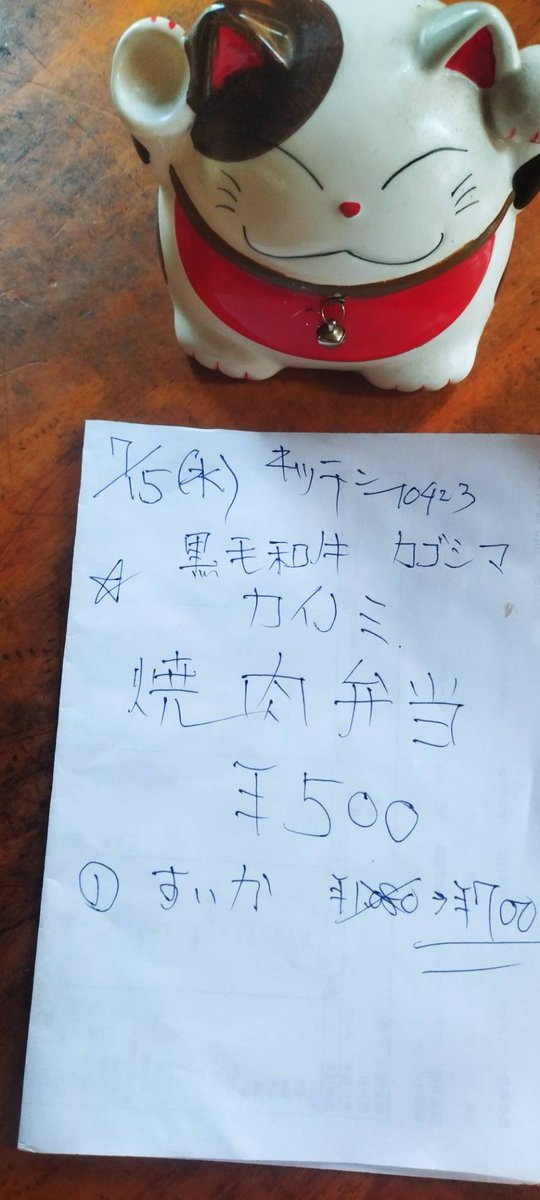 7/15(水) キッチン10423
黒毛和牛 カゴシマ
☆ カイノミ
焼肉弁当
¥500
① すいか ¥1080→¥700